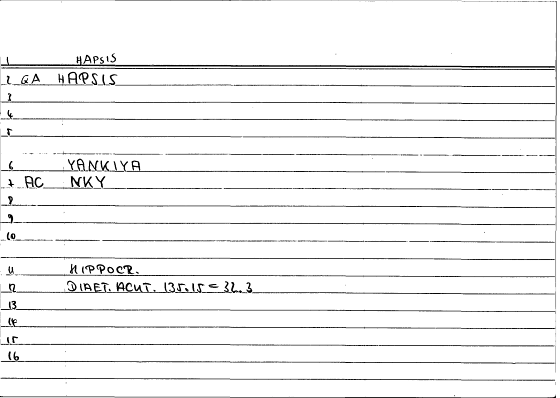 1 HAPSIS
2 GA HAPSIS
3
4
5
6 YANKIYA
7 AC NKY
8
9
10
11 HIPPOCR.
12 DIAET. ACUT. 135.15 = 32.3
13
14
15
16